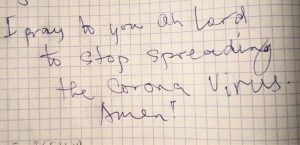 I pray to you oh Lord
to stop spreading
the Corona Virus.
Amen!